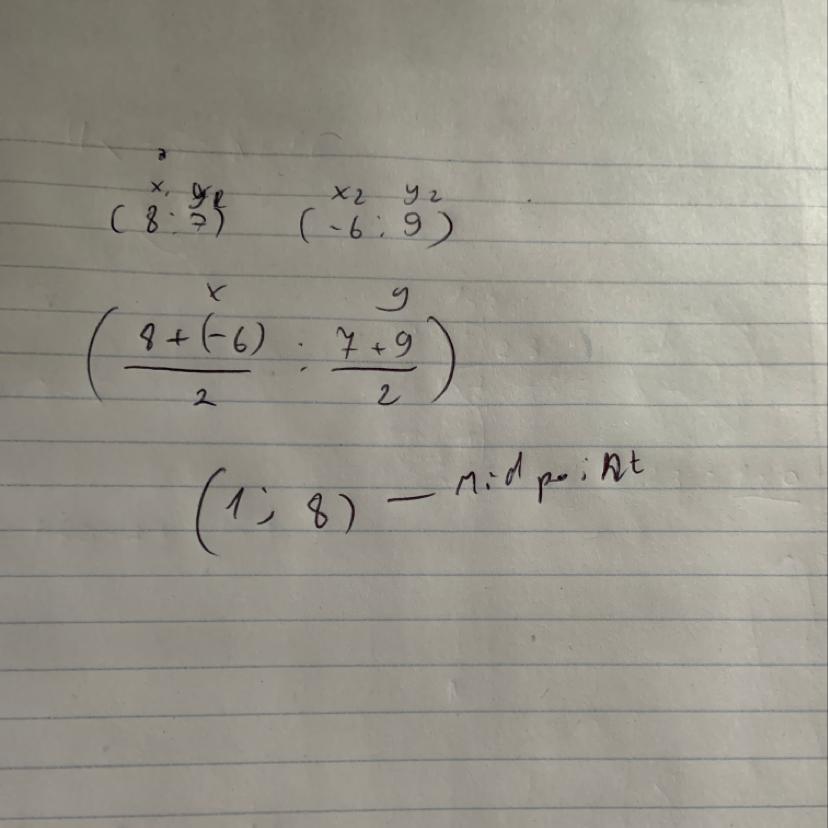 x₁ y₁ x₂ y₂
(8:7) (-6:9)
x y
(8+(-6)/2 : 7+9/2)
(1; 8) — Midpoint